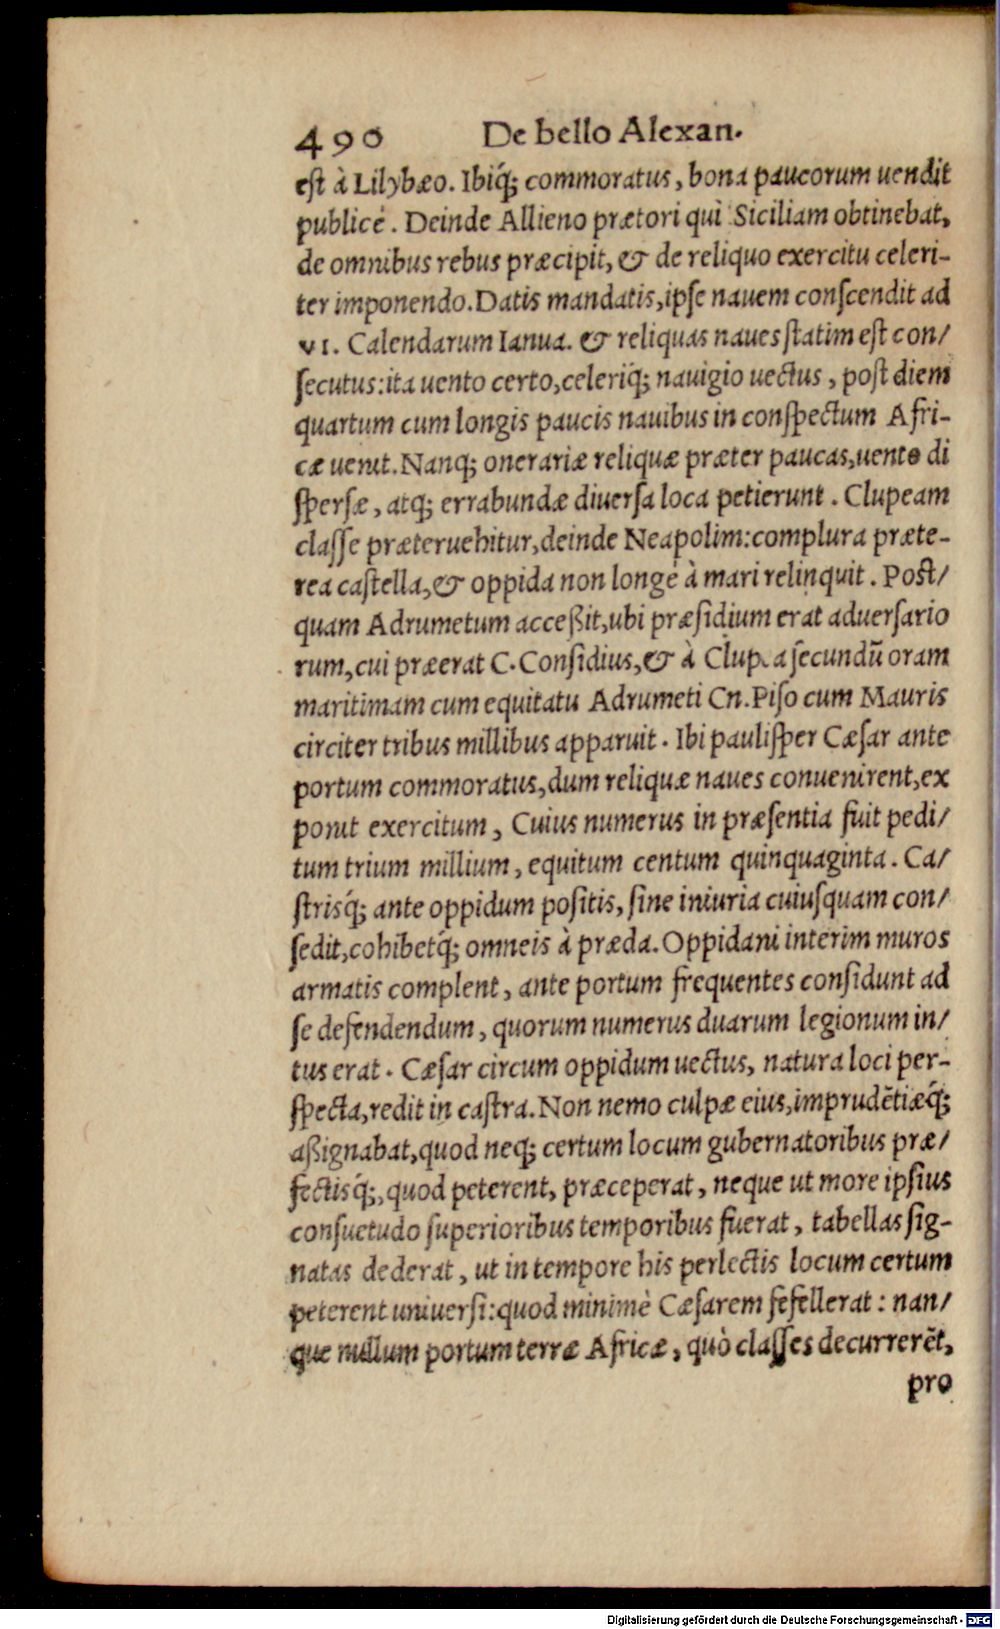 490 De bello Alexan.
est à Lilybæo. Ibiq́; commoratus, bona paucorum uendit
publicè. Deinde Allieno prætori qui Siciliam obtinebat,
de omnibus rebus præcipit, & de reliquo exercitu celeri-
ter imponendo. Datis mandatis, ipse nauem conscendit ad
VI. Calendarum Ianua. & reliquas naues statim est con/
secutus: ita uento certo, celeriq́; nauigio uectus, post diem
quartum cum longis paucis nauibus in conspectum Afri-
cæ uenit. Nanq; onerariæ reliquæ præter paucas, uento di
spersæ, atq; errabundæ diuersa loca petierunt. Clupeam
classe præteruehitur, deinde Neapolim: complura præte-
rea castella, & oppida non longè à mari relinquit. Post/
quam Adrumetum acceßit, ubi præsidium erat aduersario
rum, cui præerat C. Considius, & à Clupea secundũ oram
maritimam cum equitatu Adrumeti Cn. Piso cum Mauris
circiter tribus millibus apparuit. Ibi paulisper Cæsar ante
portum commoratus, dum reliquæ naues conuenirent, ex
ponit exercitum, Cuius numerus in præsentia fuit pedi/
tum trium millium, equitum centum quinquaginta. Ca/
strisq́; ante oppidum positis, sine iniuria cuiusquam con/
sedit, cohibetq́; omneis à præda. Oppidani interim muros
armatis complent, ante portum frequentes considunt ad
se defendendum, quorum numerus duarum legionum in/
tus erat. Cæsar circum oppidum uectus, natura loci per-
specta, redit in castra. Non nemo culpæ eius, imprudẽtiæq́;
aßignabat, quod neq; certum locum gubernatoribus præ/
fectisq́;, quod peterent, præceperat, neque ut more ipsius
consuetudo superioribus temporibus fuerat, tabellas sig-
natas dederat, ut in tempore his perlectis locum certum
peterent uniuersi: quod minimè Cæsarem fefellerat: nan/
que nullum portum terræ Africæ, quò classes decurrerẽt,
pro
Digitalisierung gefördert durch die Deutsche Forschungsgemeinschaft - DFG